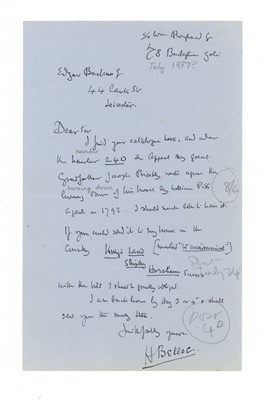 28 Buckingham Gate
July 1937?
Edgar Backus Esq
44 Cank St
Leicester.
Dear Sir
I find your catalogue here, and under
number
the number 240 the Appeal my great
Grandfather Joseph Priestly wrote upon the
burning down
burning down of his house by William Pitt's
agents in 1792. I should much like to have it.
8/6
If you could send it to my house in the
Country King's Land
Shipley
Horsham Sussex
Sent
July 24
with the bill I should be greatly obliged.
I am back home by Aug 3 or 4 & shall
send you the money then.
Faithfully yours
H Belloc
Post
4D